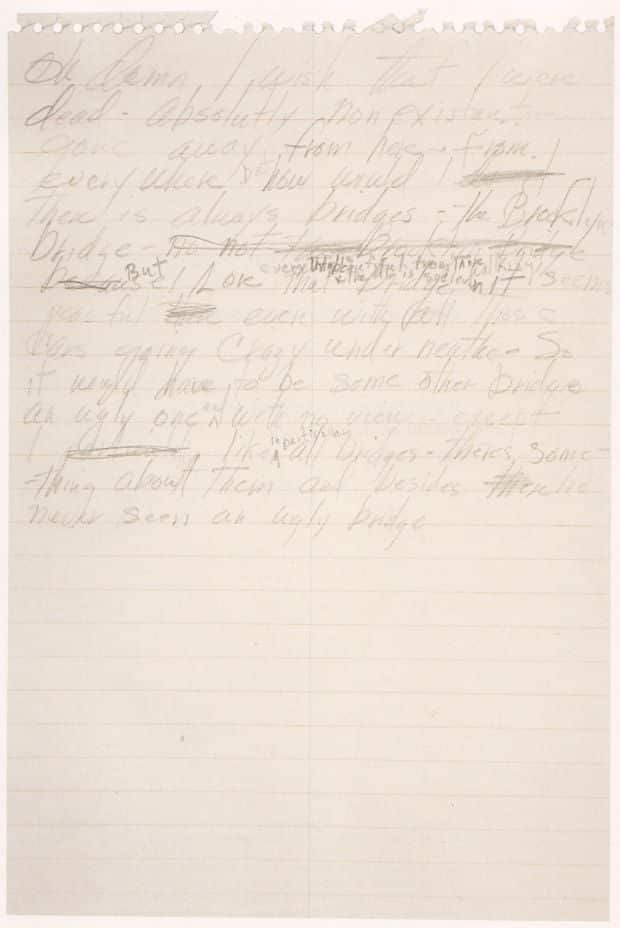 Oh damn I wish that I were
dead - absolutly non existant -
gone away from here - From
everywhere but how would I
There is always bridges - the Brooklyn
bridge - no not the Brooklyn bridge
because But I love that bridge everything is beautiful from there & the air is so clean it seems
peaceful there even with all those
cars going crazy under neathe - So
it would have to be some other bridge
an ugly one and with no view - except
I like in particular all bridges - there's some-
thing about them and besides I've
never seen an ugly bridge